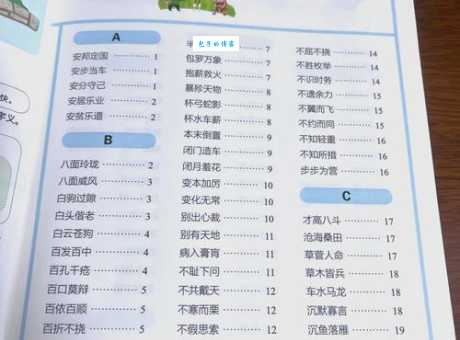 快。
义。
A
安邦定国 ………… 1
安步当车 ………… 1
安分守己 ………… 1
安居乐业 ………… 2
安贫乐道 ………… 2
B
八面玲珑 ………… 2
八面威风 ………… 3
白驹过隙 ………… 3
白头偕老 ………… 3
白云苍狗 ………… 4
百发百中 ………… 4
百孔千疮 ………… 4
百口莫辩 ………… 5
百依百顺 ………… 5
百折不挠 ………… 5
包子的博客
………… 7
包罗万象 ………… 7
抱薪救火 ………… 7
暴殄天物 ………… 8
杯弓蛇影 ………… 8
杯水车薪 ………… 8
本末倒置 ………… 9
闭门造车 ………… 9
闭月羞花 ………… 9
变本加厉 ………… 10
变化无常 ………… 10
别出心裁 ………… 10
别有天地 ………… 11
病入膏肓 ………… 11
不耻下问 ………… 11
不共戴天 ………… 12
不寒而栗 ………… 12
不假思索 ………… 12
不屈不挠 ………… 14
不胜枚举 ………… 14
不识时务 ………… 14
不遗余力 ………… 15
不翼而飞 ………… 15
不约而同 ………… 15
不知轻重 ………… 16
不知所措 ………… 16
步步为营 ………… 16
C
才高八斗 ………… 17
沧海桑田 ………… 17
草菅人命 ………… 17
草木皆兵 ………… 18
车水马龙 ………… 18
沉默寡言 ………… 18
沉鱼落雁 ………… 19